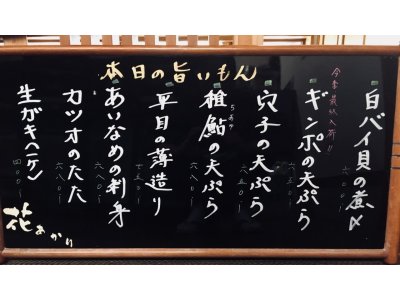 本日の旨いもん
今季最終入荷!!
白バイ貝の煮〆
六〇〇〜
ギンポの天ぷら
六五〇〜
穴子の天ぷら
六五〇〜
稚鮎の天ぷら
ちあゆ
六八〇〜
平目の薄造り
七五〇〜
あいなめの刺身
六八〇〜
カツオのたたき
六八〇〜
生がキ(一ケ)
四〇〇〜
花あかり